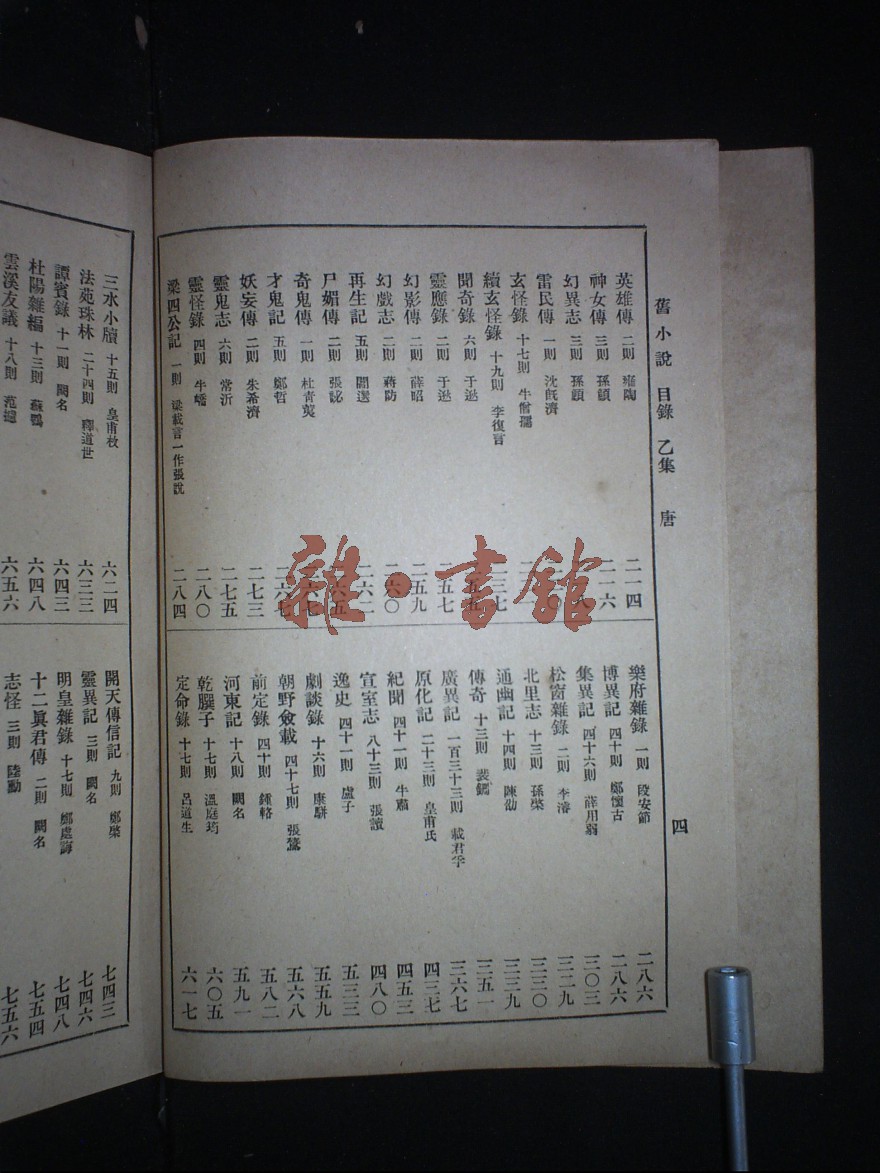 舊小說 目錄 乙集 唐
四
英雄傳 二則 雍陶 二一四
神女傳 三則 孫頠 二一六
幻異志 三則 孫頠
雷民傳 一則 沈既濟
玄怪錄 十七則 牛僧孺
續玄怪錄 十九則 李復言
聞奇錄 六則 于逖
靈應錄 二則 于逖 二五七
幻影傳 二則 薛昭 二五九
幻戲志 二則 蔣防 二六〇
再生記 五則 閻選 二六二
尸媚傳 二則 張泌
奇鬼傳 一則 杜青荑
才鬼記 五則 鄭哲
妖妄傳 二則 朱希濟 二七三
靈鬼志 六則 常沂 二七五
靈怪錄 四則 牛嶠 二八〇
梁四公記 一則 梁載言一作張說 二八四
樂府雜錄 一則 段安節 二八六
博異記 四十則 鄭懷古 二八六
集異記 四十六則 薛用弱 三〇三
松窗雜錄 二則 李濬 三二九
北里志 十三則 孫棨 三三〇
通幽記 十四則 陳劭 三三九
傳奇 十三則 裴鉶 三五一
廣異記 一百三十三則 戴君孚 三六七
原化記 二十三則 皇甫氏 四三七
紀聞 四十一則 牛肅 四五三
宣室志 八十三則 張讀 四八〇
逸史 四十一則 盧子 五三三
劇談錄 十六則 康駢 五五九
朝野僉載 四十七則 張鷟 五六八
前定錄 四十則 鍾輅 五八二
河東記 十八則 闕名 五九一
乾䉵子 十七則 溫庭筠 六〇五
定命錄 十七則 呂道生 六一七
三水小牘 十五則 皇甫枚 六二四
法苑珠林 二十四則 釋道世 六三三
譚賓錄 十一則 闕名 六四三
杜陽雜編 十三則 蘇鶚 六四八
雲溪友議 十八則 范攄 六五六
開天傳信記 九則 鄭棨 七四三
靈異記 三則 闕名 七四六
明皇雜錄 十七則 鄭處誨 七四八
十二眞君傳 二則 闕名 七五四
志怪 三則 陸勳 七五六
雜·書館